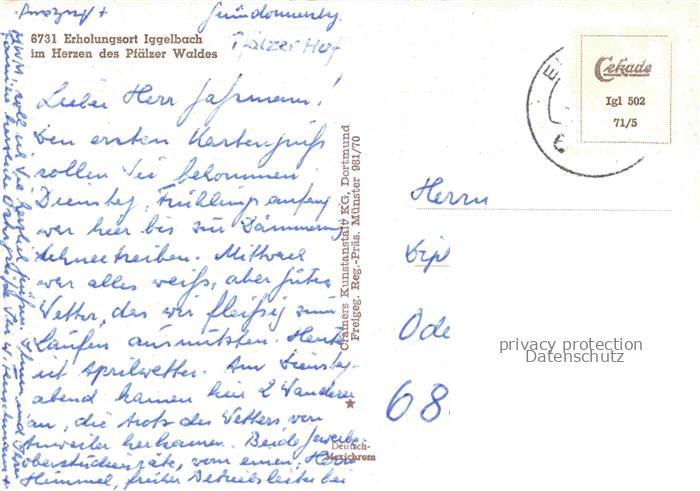 Gründonnerstag
6731 Erholungsort Iggelbach
im Herzen des Pfälzer Waldes
Pfälzer Hof
Lieber Herr
Den ersten Kartengruß
sollen Sie bekommen.
Dienstag, Frühlingsanfang
war hier bis zur Dämmerung
Schneetreiben. Mittwoch
war alles weiß, aber gutes
Wetter, das wir fleißig zum
Laufen ausnutzten. Heute
ist Aprilwetter. Am Dienstag-
abend kamen hier 2 Wanderer
an, die trotz des Wetters von
Anweiler herkamen. Beide Gewerbe-
oberstudienräte, vom einen, Herrn
Himmel, früher Betriebsleiter bei
Cramers Kunstanstalt KG, Dortmund
Freigeg. Reg.-Präs. Münster 981/70
Deutsch-
Mexichrom
Cekade
Igl 502
71/5
Herrn
Dipl
Ode
68
privacy protection
Datenschutz